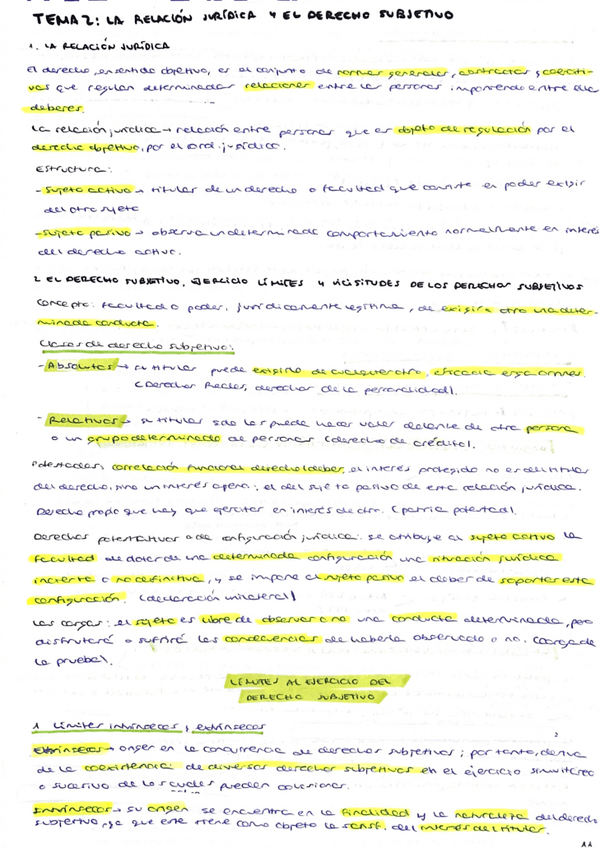 TEMA 2: LA RELACIÓN JURÍDICA Y EL DERECHO SUBJETIVO
1. LA RELACIÓN JURÍDICA
El derecho, en sentido objetivo, es el conjunto de normas generales, abstractas y coerciti-
vas que regulan determinadas relaciones entre las personas imponiendo entre ellas
deberes.
La relación jurídica → relación entre personas que es objeto de regulación por el
derecho objetivo, por el ord. jurídico.
Estructura:
- Sujeto activo → titular de un derecho o facultad que consiste en poder exigir
del otro sujeto
- Sujeto pasivo → observa un determinado comportamiento normalmente en interés
del derecho activo.
2. EL DERECHO SUBJETIVO, EJERCICIO LÍMITES Y VICISITUDES DE LOS DERECHOS SUBJETIVOS
Concepto: facultad o poder, jurídicamente legítima, de exigir a otro una deter-
minada conducta.
Clases de derecho subjetivo:
- Absolutos → su titular puede exigirlo de cualquier otro, eficacia erga omnes.
(Derechos Reales, derechos de la personalidad).
- Relativos → su titular solo los puede hacer valer delante de otra persona
o un grupo determinado de personas (derecho de crédito).
Potestades: correlación funcional derecho/deber, el interés protegido no es del titular
del derecho, sino un interés ajeno: el del sujeto pasivo de esta relación jurídica.
Derecho propio que hay que ejercitar en interés de otro. (patria potestad).
Derechos potestativos o de configuración jurídica: se atribuye al sujeto activo la
facultad de dotar de una determinada configuración, una situación jurídica
incierta o no definitiva, y se impone al sujeto pasivo el deber de soportar esta
configuración. (declaración unilateral)
Las cargas: el sujeto es libre de observar o no una conducta determinada, pero
disfrutará o sufrirá las consecuencias de haberla observado o no. (carga de
la prueba).
LÍMITES AL EJERCICIO DEL
DERECHO SUBJETIVO
1 Límites intrínsecos y extrínsecos
Extrínsecos → origen en la concurrencia de derechos subjetivos; por tanto, deriva
de la coexistencia de diversos derechos subjetivos en el ejercicio simultáneo
o sucesivo de los cuales pueden colisionar.
Intrínsecos → su origen se encuentra en la finalidad y la naturaleza del derecho
subjetivo, ya que este tiene como objeto la satisf. del interés del titular.
11